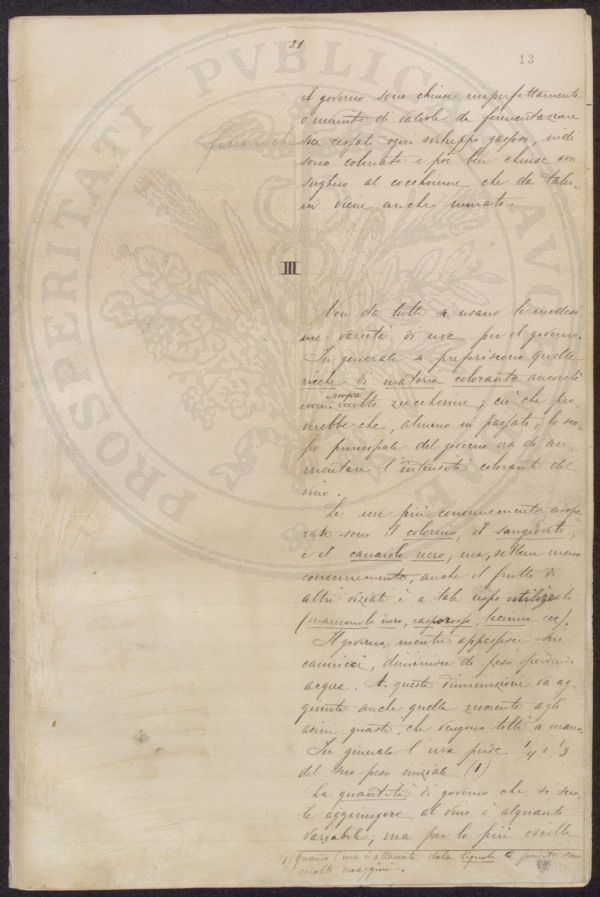 21
13
il governo sono chiusi imperfettamente
o muniti di valvole da fermentazione
finchè che sia cessato ogni sviluppo gassoso, indi
sono colmate e poi ben chiuse con
sughero al cocchiume che da talu-
ni viene anche murato.
III
Non da tutti si usano le medesi
me varietà di uve per il governo.
In generale si preferiscono quelle
ricche di materia colorante ancorchè
non sempre molto zuccherine; ciò che pro-
verebbe che, almeno in passato, lo sco-
po principale del governo era di au-
mentare l'intensità colorante del
vino.
Le uve più comunemente adope
rate sono il colorino, il sangioveto,
e il canaiolo nero; ma, sebbene meno
comunemente, anche il frutto di
altri viziati è a tale uopo utilizzato
(mammolo nero, raspo rosso, lacrima ecc).
Il governo, mentre appassisce sui
cannicci, diminuisce di peso perdendo
acqua. A questa diminuzione va ag
giunta anche quella inerente agli
acini guasti, che vengono tolti a mano.
In generale l'uva perde 1/4 o 1/3
del suo peso iniziale (1)
La quantità di governo che si suo-
le aggiungere al vino è alquanto
variabile; ma per lo più oscilla
(1) Quando l'uva è attaccata dalla tignola le perdite sono
molto maggiori.
PROSPERITATI PVBLICAE AVG